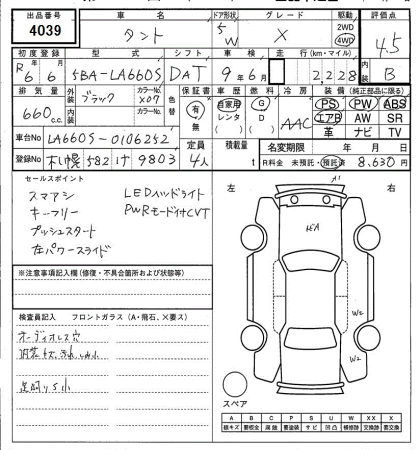 出品番号 車名 ドア形状 グレード 駆動 評価点
4039 タント 5 W X 2WD 4WD 4.5
初度登録 型式 シフト 車検 走行 (km・マイル) 内装
R6 6 5BA-LA660S DAT 9年6月 2228 B
排気量 外装 色 カラーNo. 色替 カラーNo. 保証書 車歴 燃料 冷房 装備 (純正部品に限る)
660c.c. ブラック X07 有 無 自家用 レンタ ( ) G D AAC PS PW ABS
エアB AW SR
革 ナビ TV
車台No LA660S-0106252 定員 積載量 名変期限 年 月 日
登録No 札幌 582 け 9803 4人 t R料金 未預託・預託済 8,630 円
セールスポイント
スマアシ LEDヘッドライト
キーフリー PWRモード付CVT
プッシュスタート
左パワースライド
左 右
A1
LEA
W2
W2
※注意事項記入欄(修復・不具合箇所および状態等)
検査員記入 フロントガラス(A・飛石、×要ス)
オーディオレス穴
内装キズ、汚れ、しみ小
足廻りS小
スペア
A B C P S U W X XX ×
線キズ 要板金 腐蝕 要塗装 サビ 凹凸 補修跡 要交換 交換済 要交換